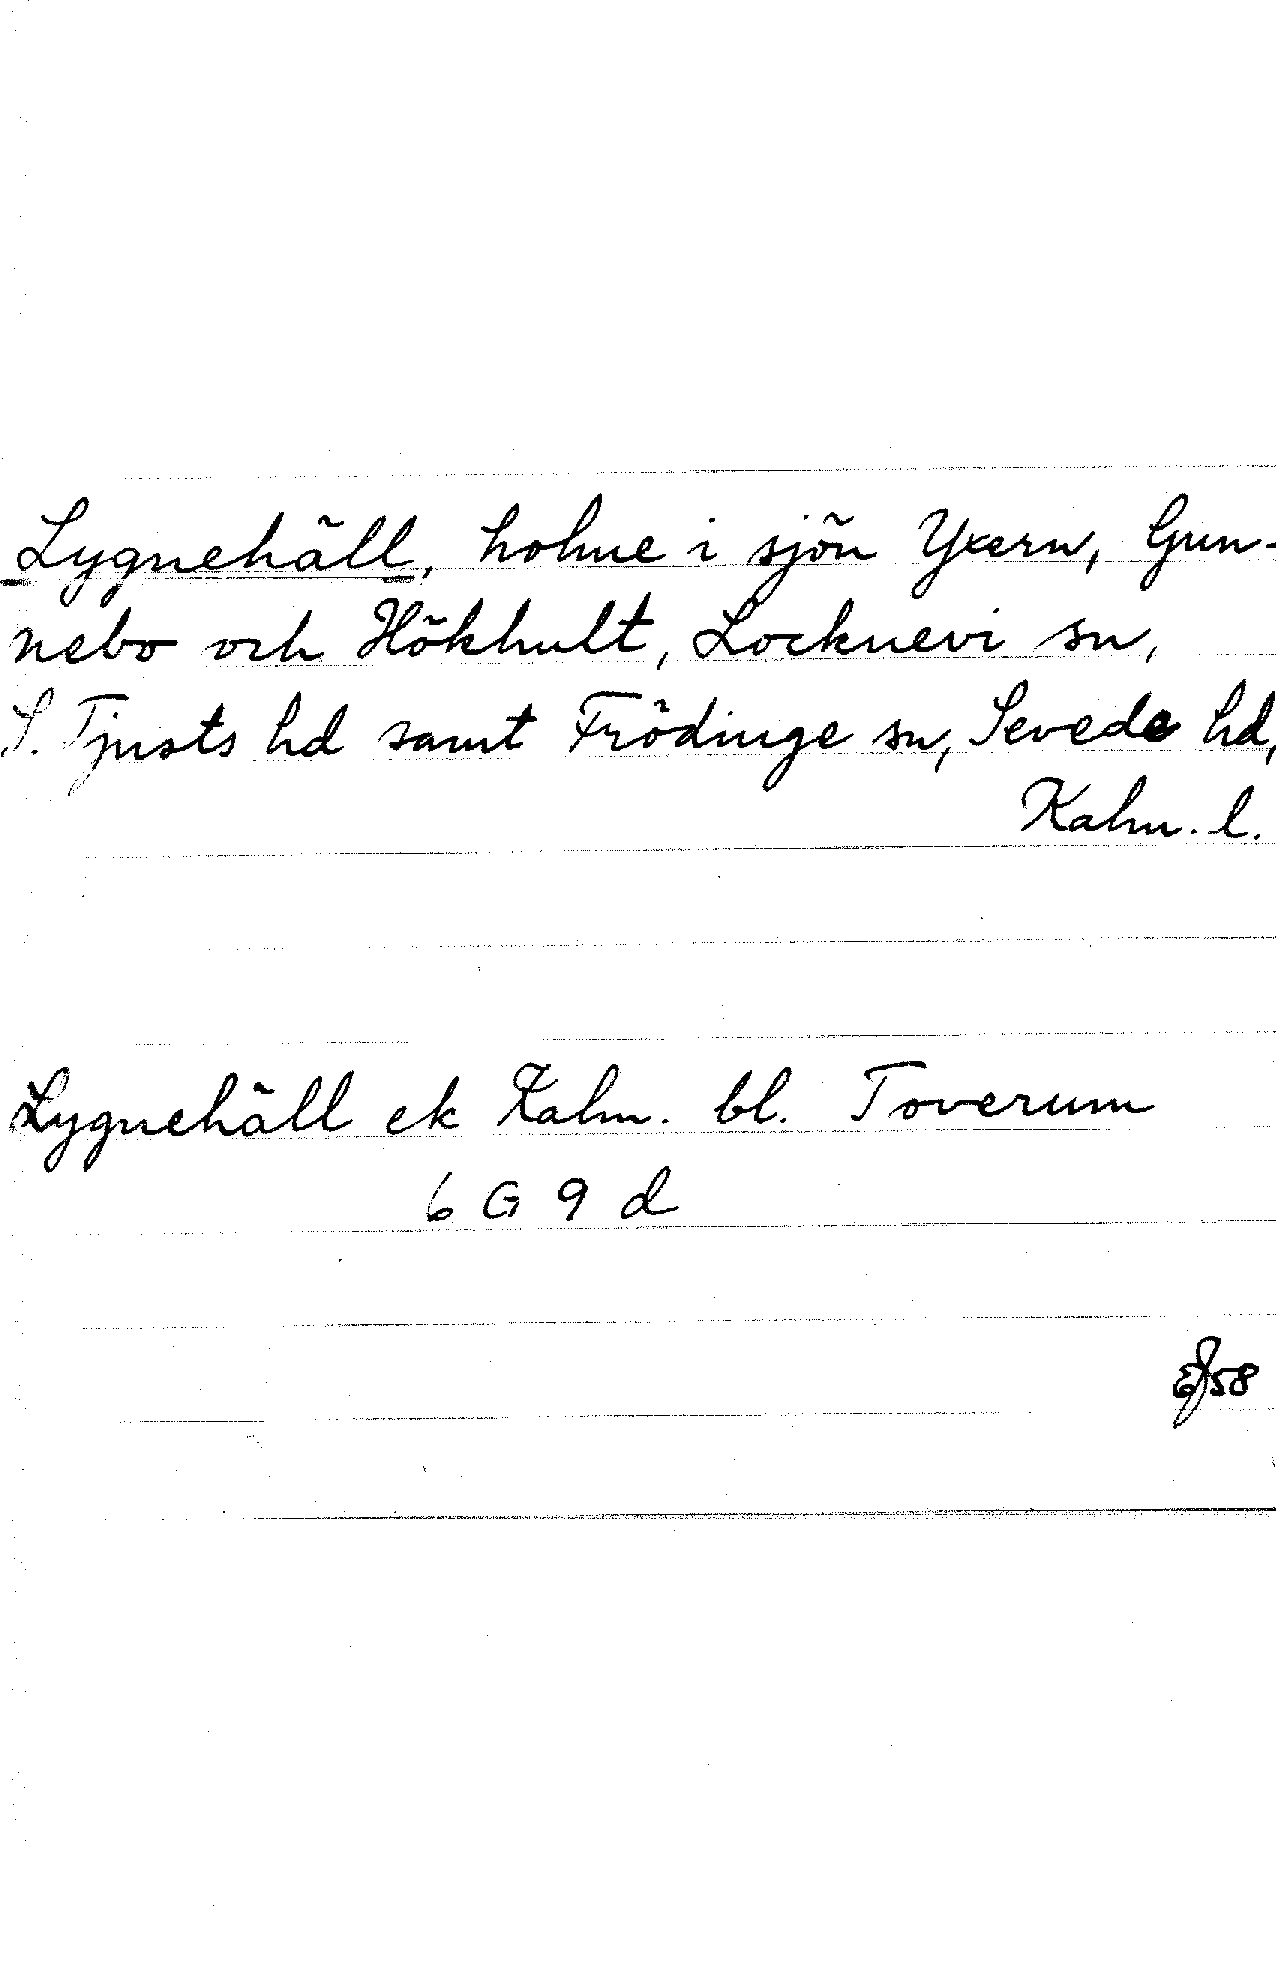 Lygnehäll, holme i sjön Yxern, Gun-
nebo och Hökhult, Locknevi sn,
S. Tjusts hd samt Frödinge sn, Sevede hd,
Kalm. l.
Lygnehäll ek Kalm. bl. Toverum
6 G 9 d
58